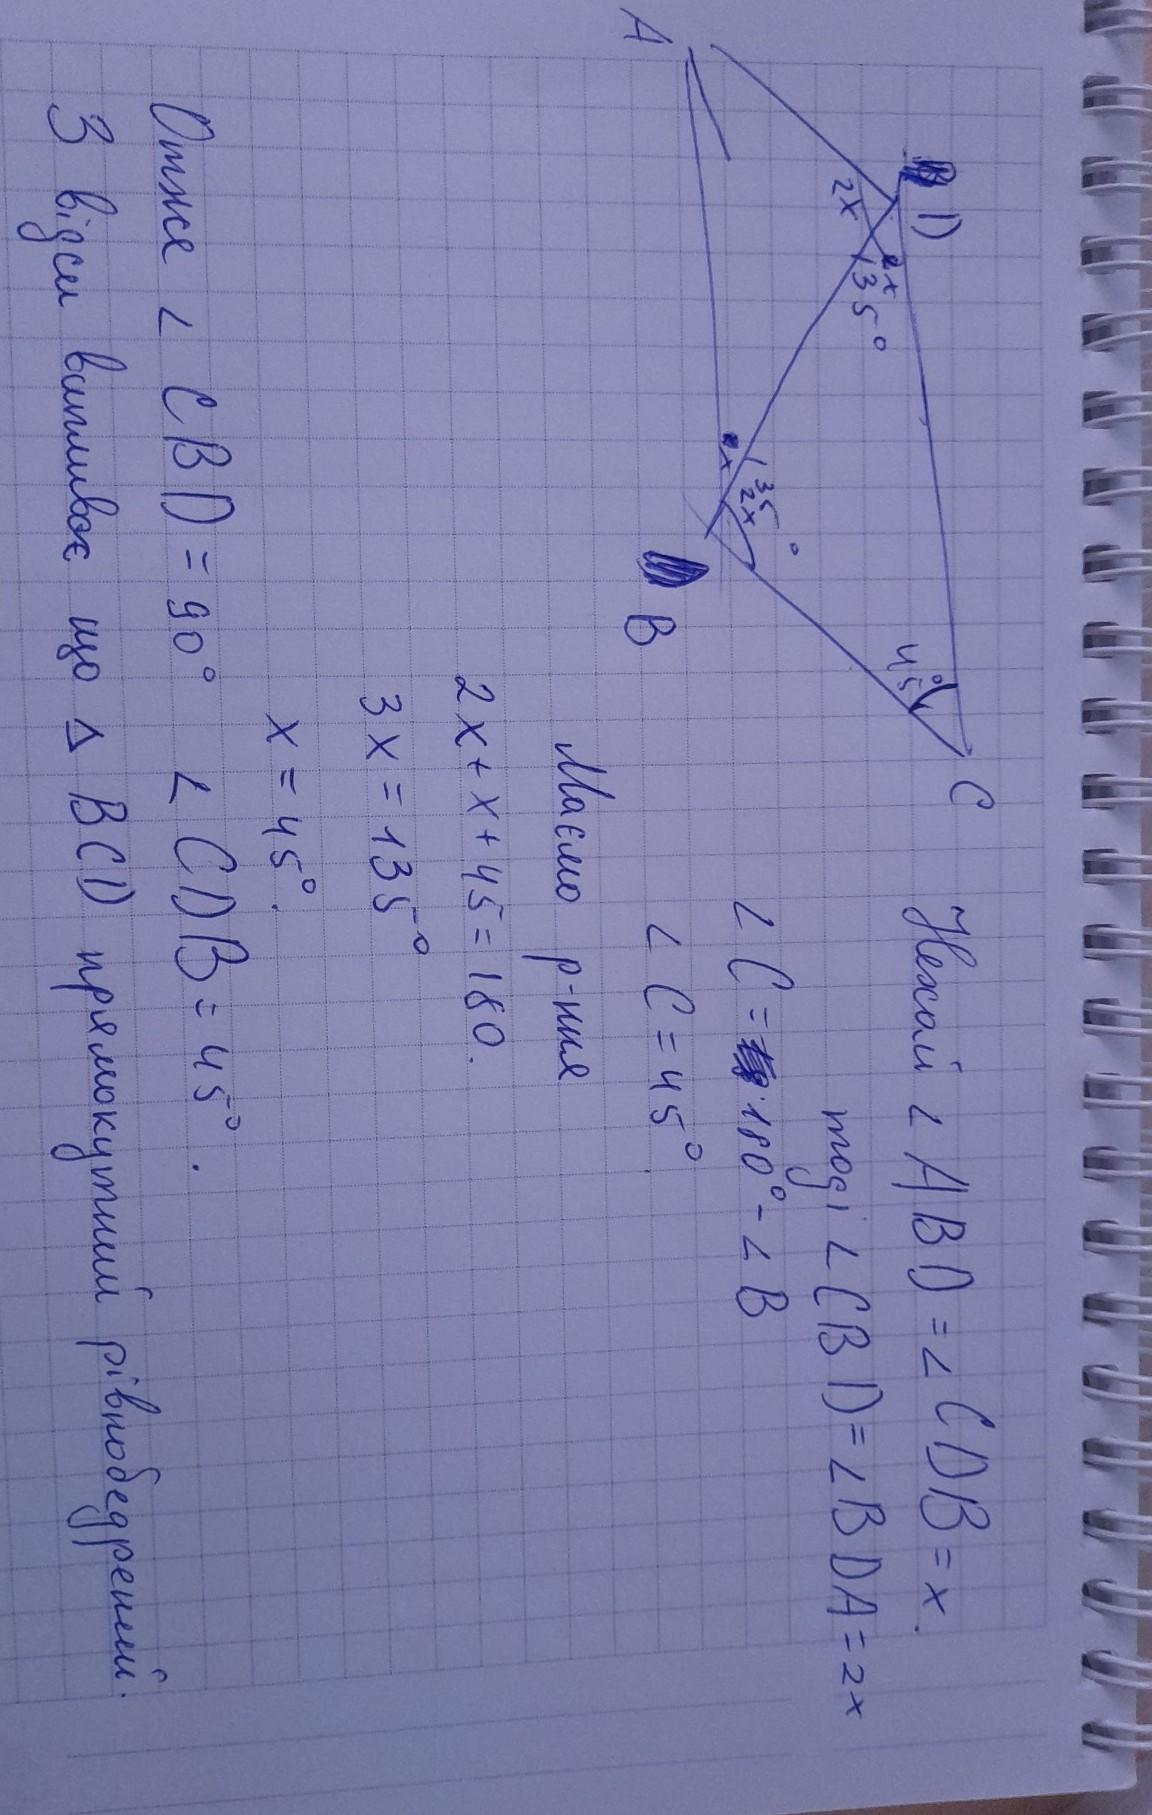 A
D
2x
x
135°
x
135°
2x
B
45°
C
Нехай ∠ ABD = ∠ CDB = x.
тоді ∠ CBD = ∠ BDA = 2x
∠ C = 180° - ∠ B
∠ C = 45°.
Маємо р-ння
2x + x + 45 = 180.
3x = 135°
x = 45°.
Отже ∠ CBD = 90° ∠ CDB = 45°.
З відси випливає що Δ BCD прямокутний рівнобедрений.